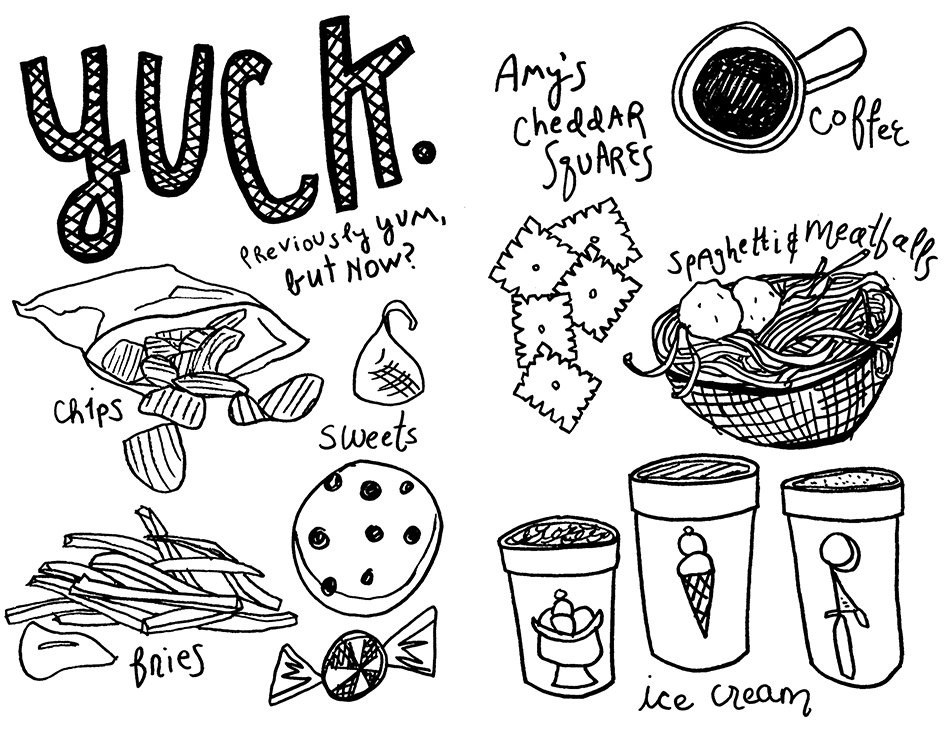 yuck.
previously yum,
but now?
chips
sweets
fries
Amy's
Cheddar
Squares
coffee
spaghetti & meatballs
ice cream